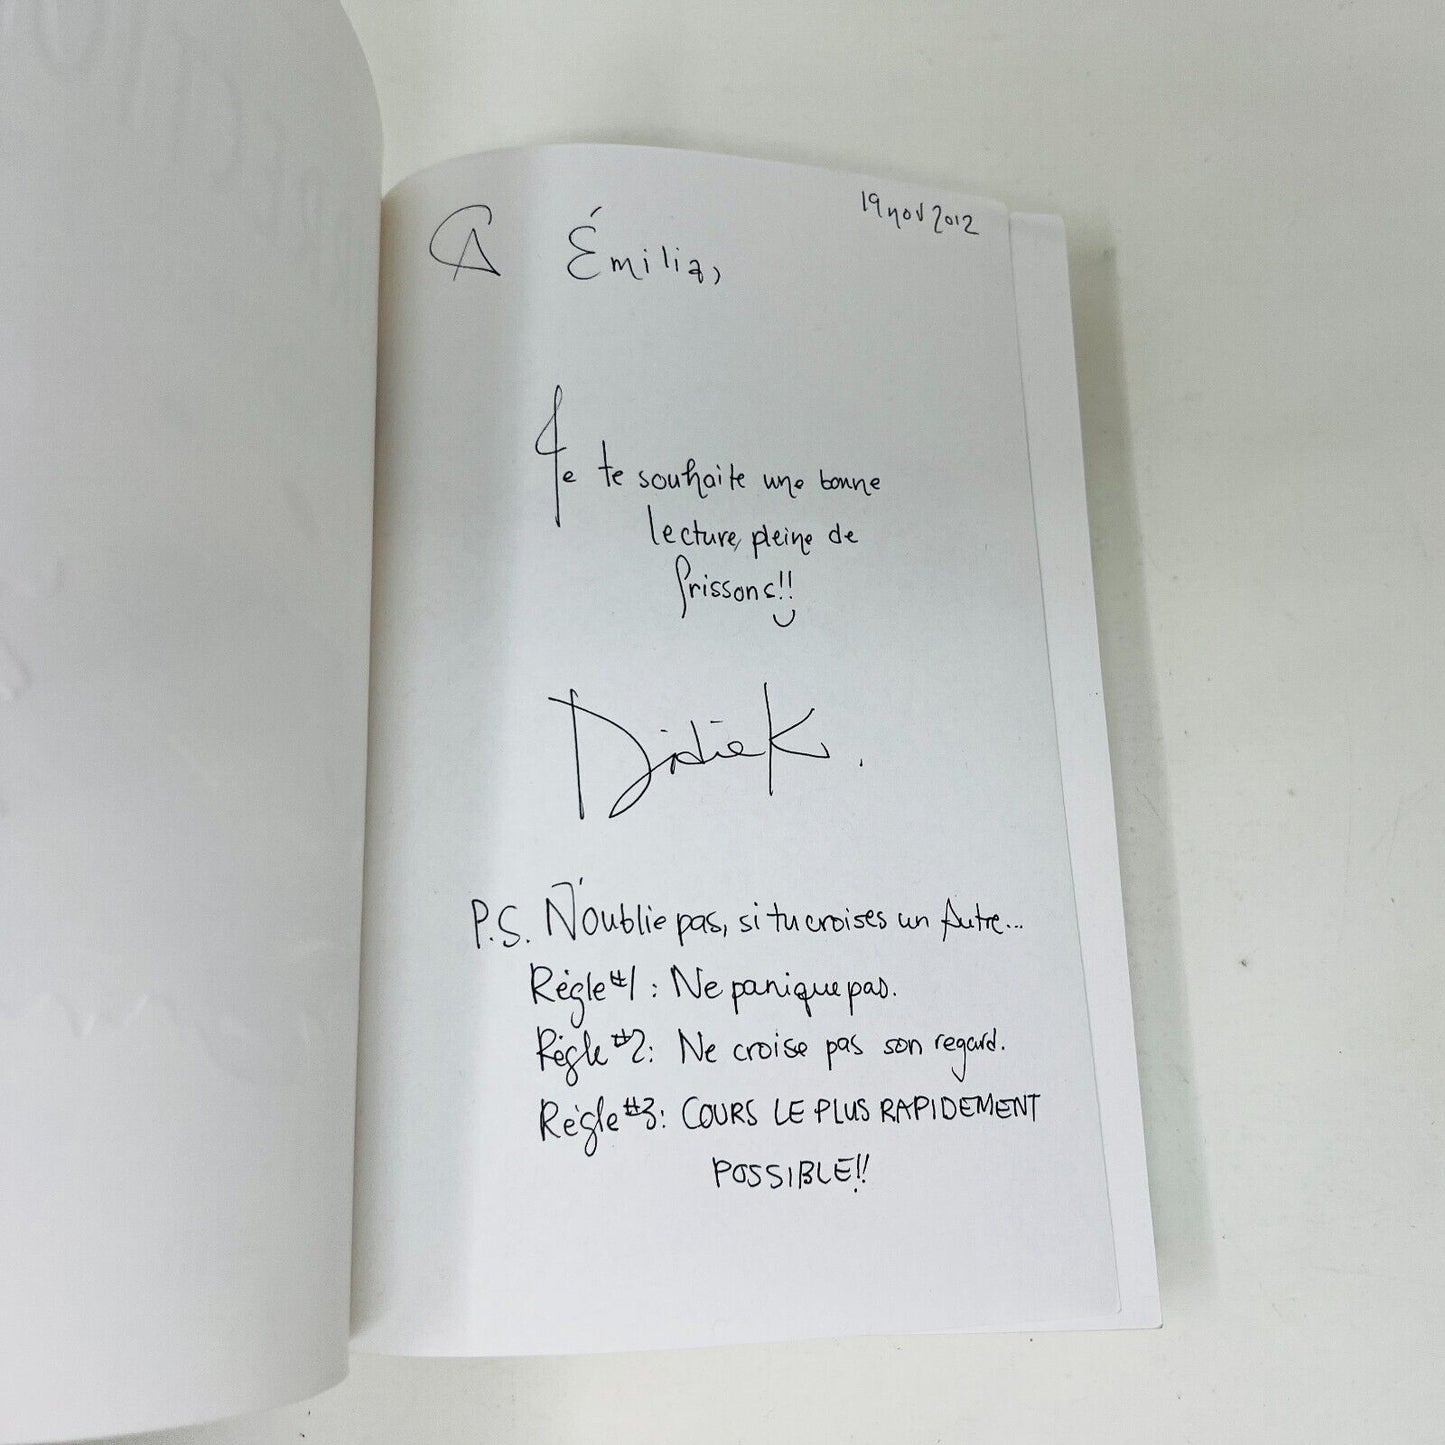 19 nov 2012
À Émilia,
Je te souhaite une bonne
lecture, pleine de
frissons!!
DidieK.
P.S. N'oublie pas, si tu croises un Autre...
Règle #1 : Ne panique pas.
Règle #2 : Ne croise pas son regard.
Règle #3 : COURS LE PLUS RAPIDEMENT
POSSIBLE!!